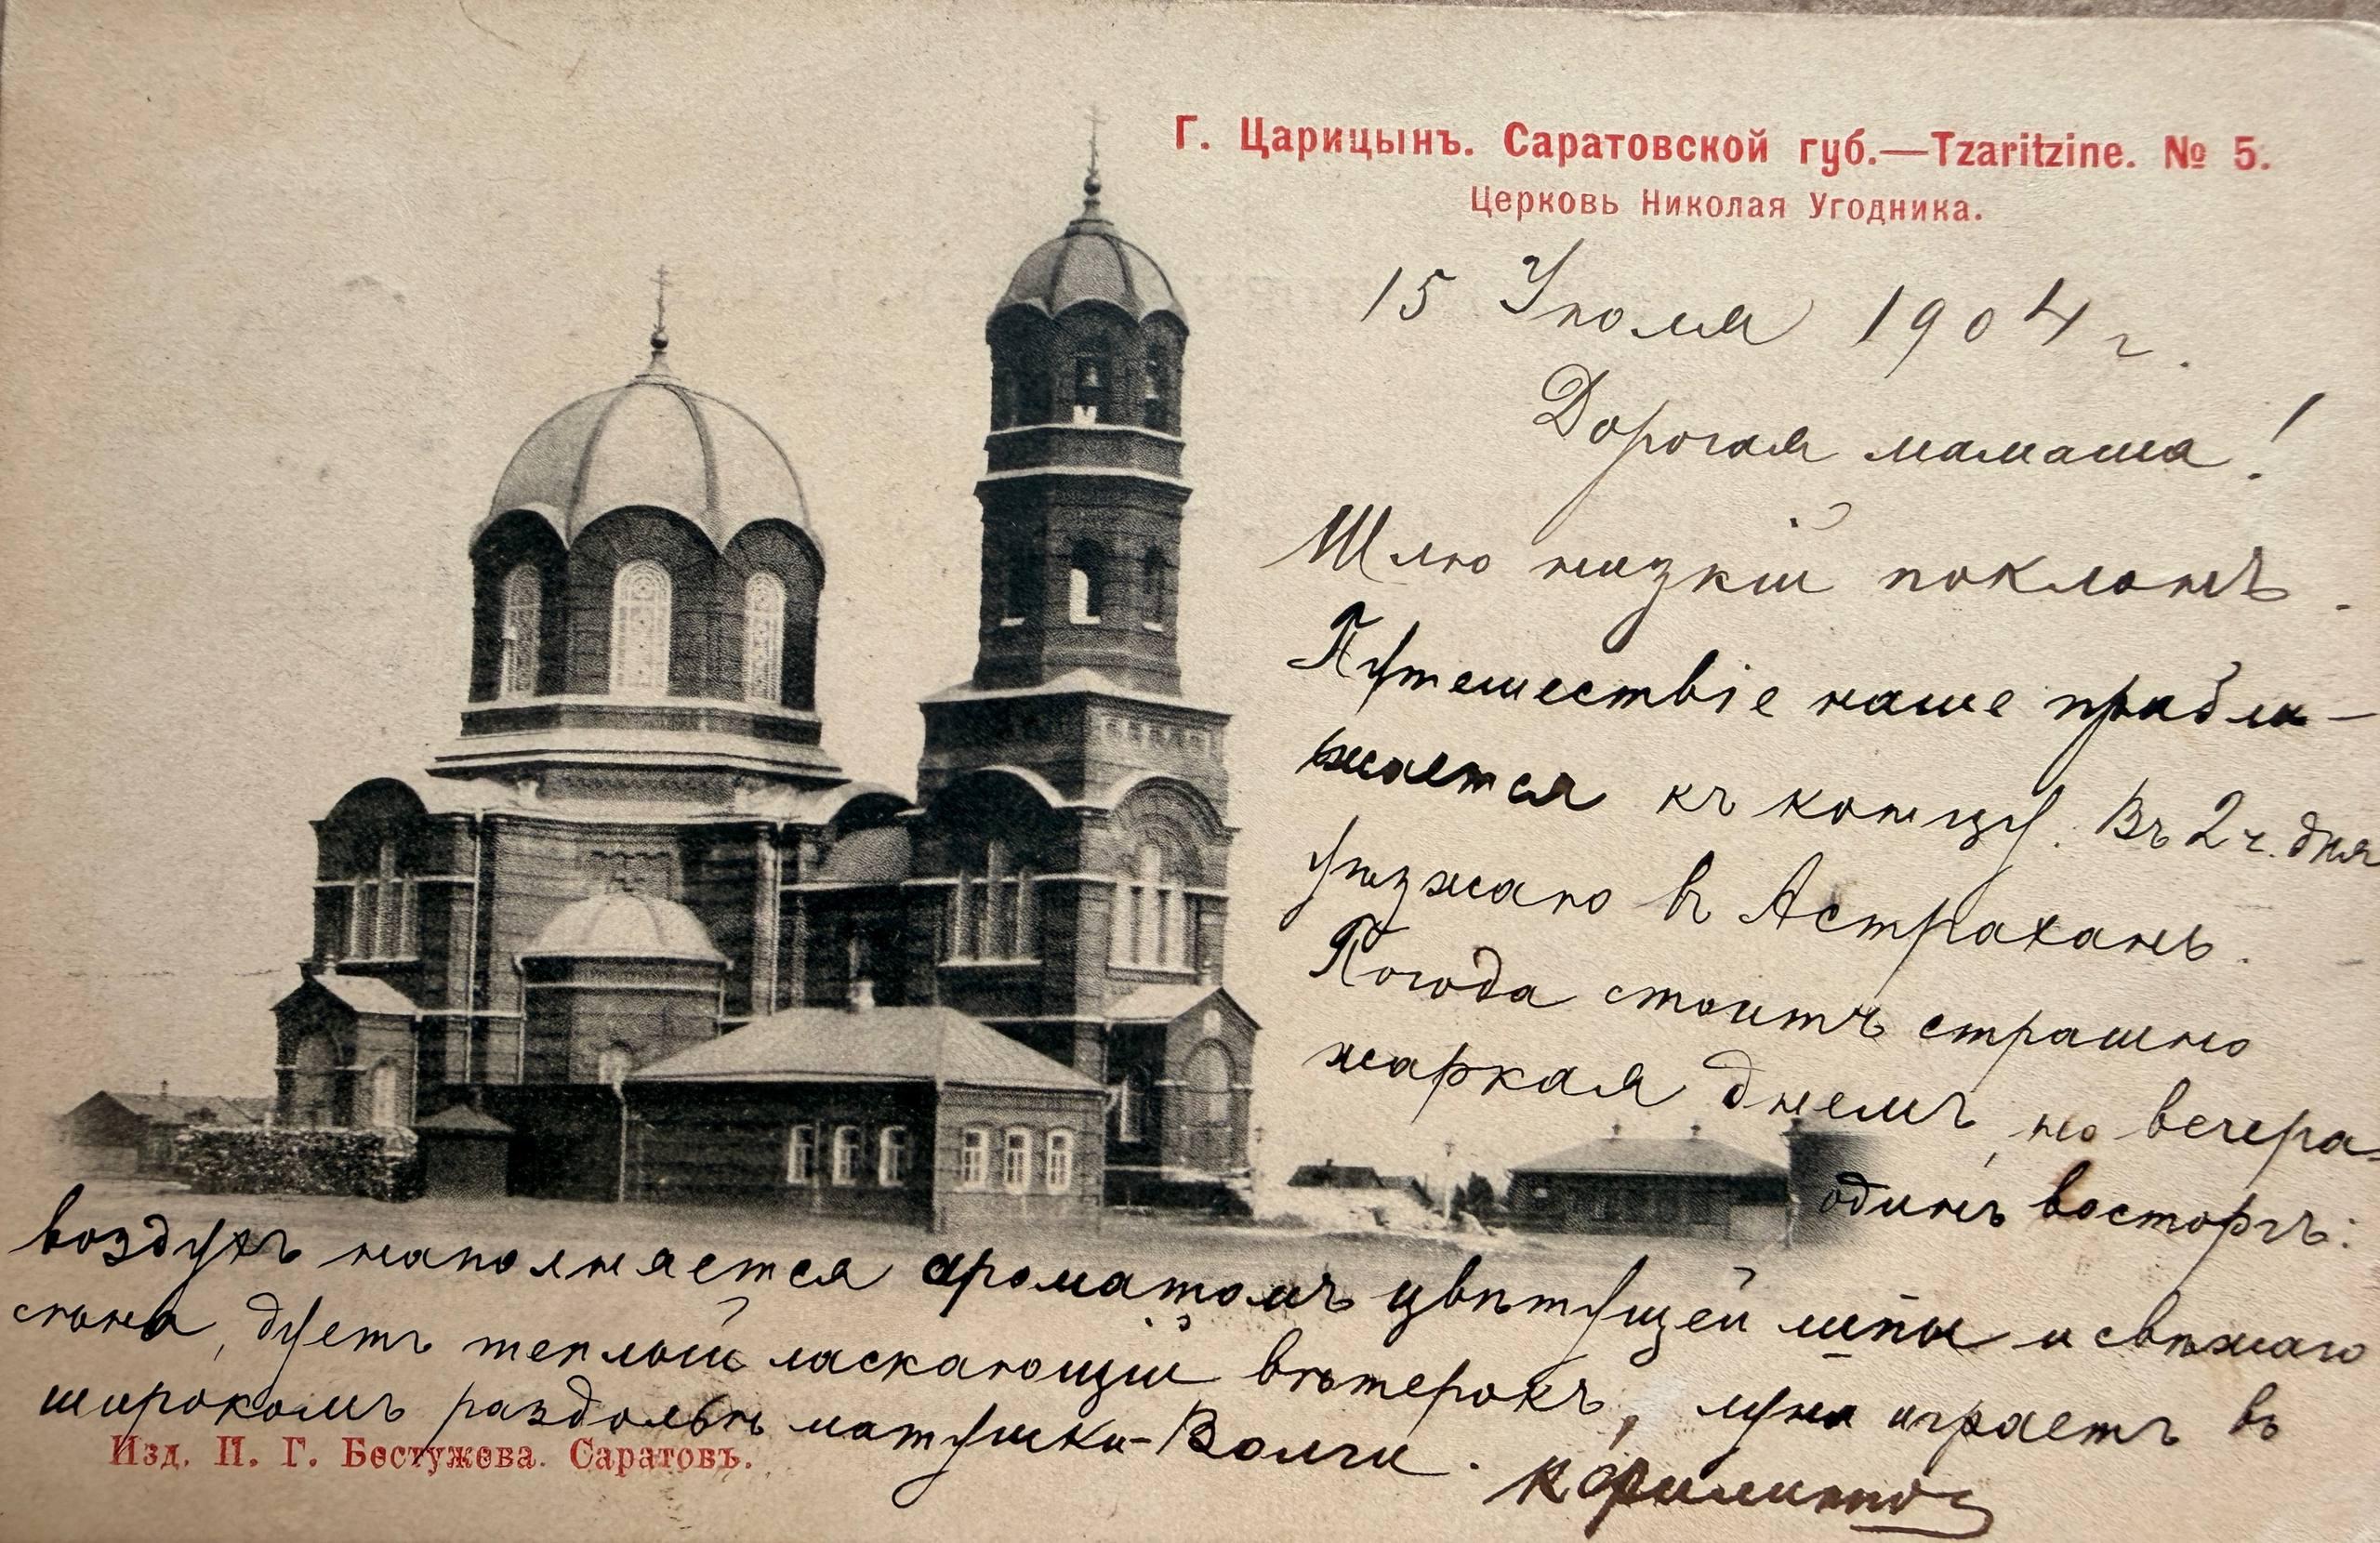 Г. Царицынъ. Саратовской губ.—Tzaritzine. № 5.
Церковь Николая Угодника.
15 Іюля 1904 г.
Дорогая мамаша!
Шлю низкій поклонъ.
Путешествіе наше прибли-
жается къ концу. Въ 2 ч. дня
уѣзжаю въ Астрахань.
Погода стоитъ страшно
жаркая днемъ, но вечера
одинъ восторгъ:
воздухъ наполняется ароматомъ цвѣтущей липы и свѣжаго
сѣна, дуетъ теплый ласкающій вѣтерокъ, луна играетъ въ
широкомъ раздольѣ матушки-Волги.
Изд. П. Г. Бестужева. Саратовъ.